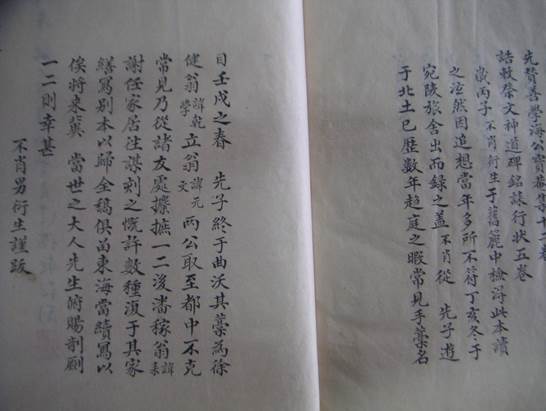 先贊善學海公實菴集十二卷
誥敕祭文神道碑銘誄行狀五卷
歲丙子不肖衍生于舊簏中檢得此本讀
之泫然因追想當年多所不符丁亥冬于
宛陵旅舍出而錄之蓋不肖從 先子遊
于北土已歷數年趨庭之暇常見手藁名
目壬戌之春 先子終于曲沃其藁為徐
健翁諱乾學立翁諱元文兩公取至都中不克
常見乃從諸友處攟摭一二後潘稼翁諱耒
謝任家居往謀刻之慨許數種復于其家
繕寫別本以歸全稿俱留東海當續寫以
俟將來冀 當世之大人先生俯賜剞劂
一二則幸甚
不肖男衍生謹跋